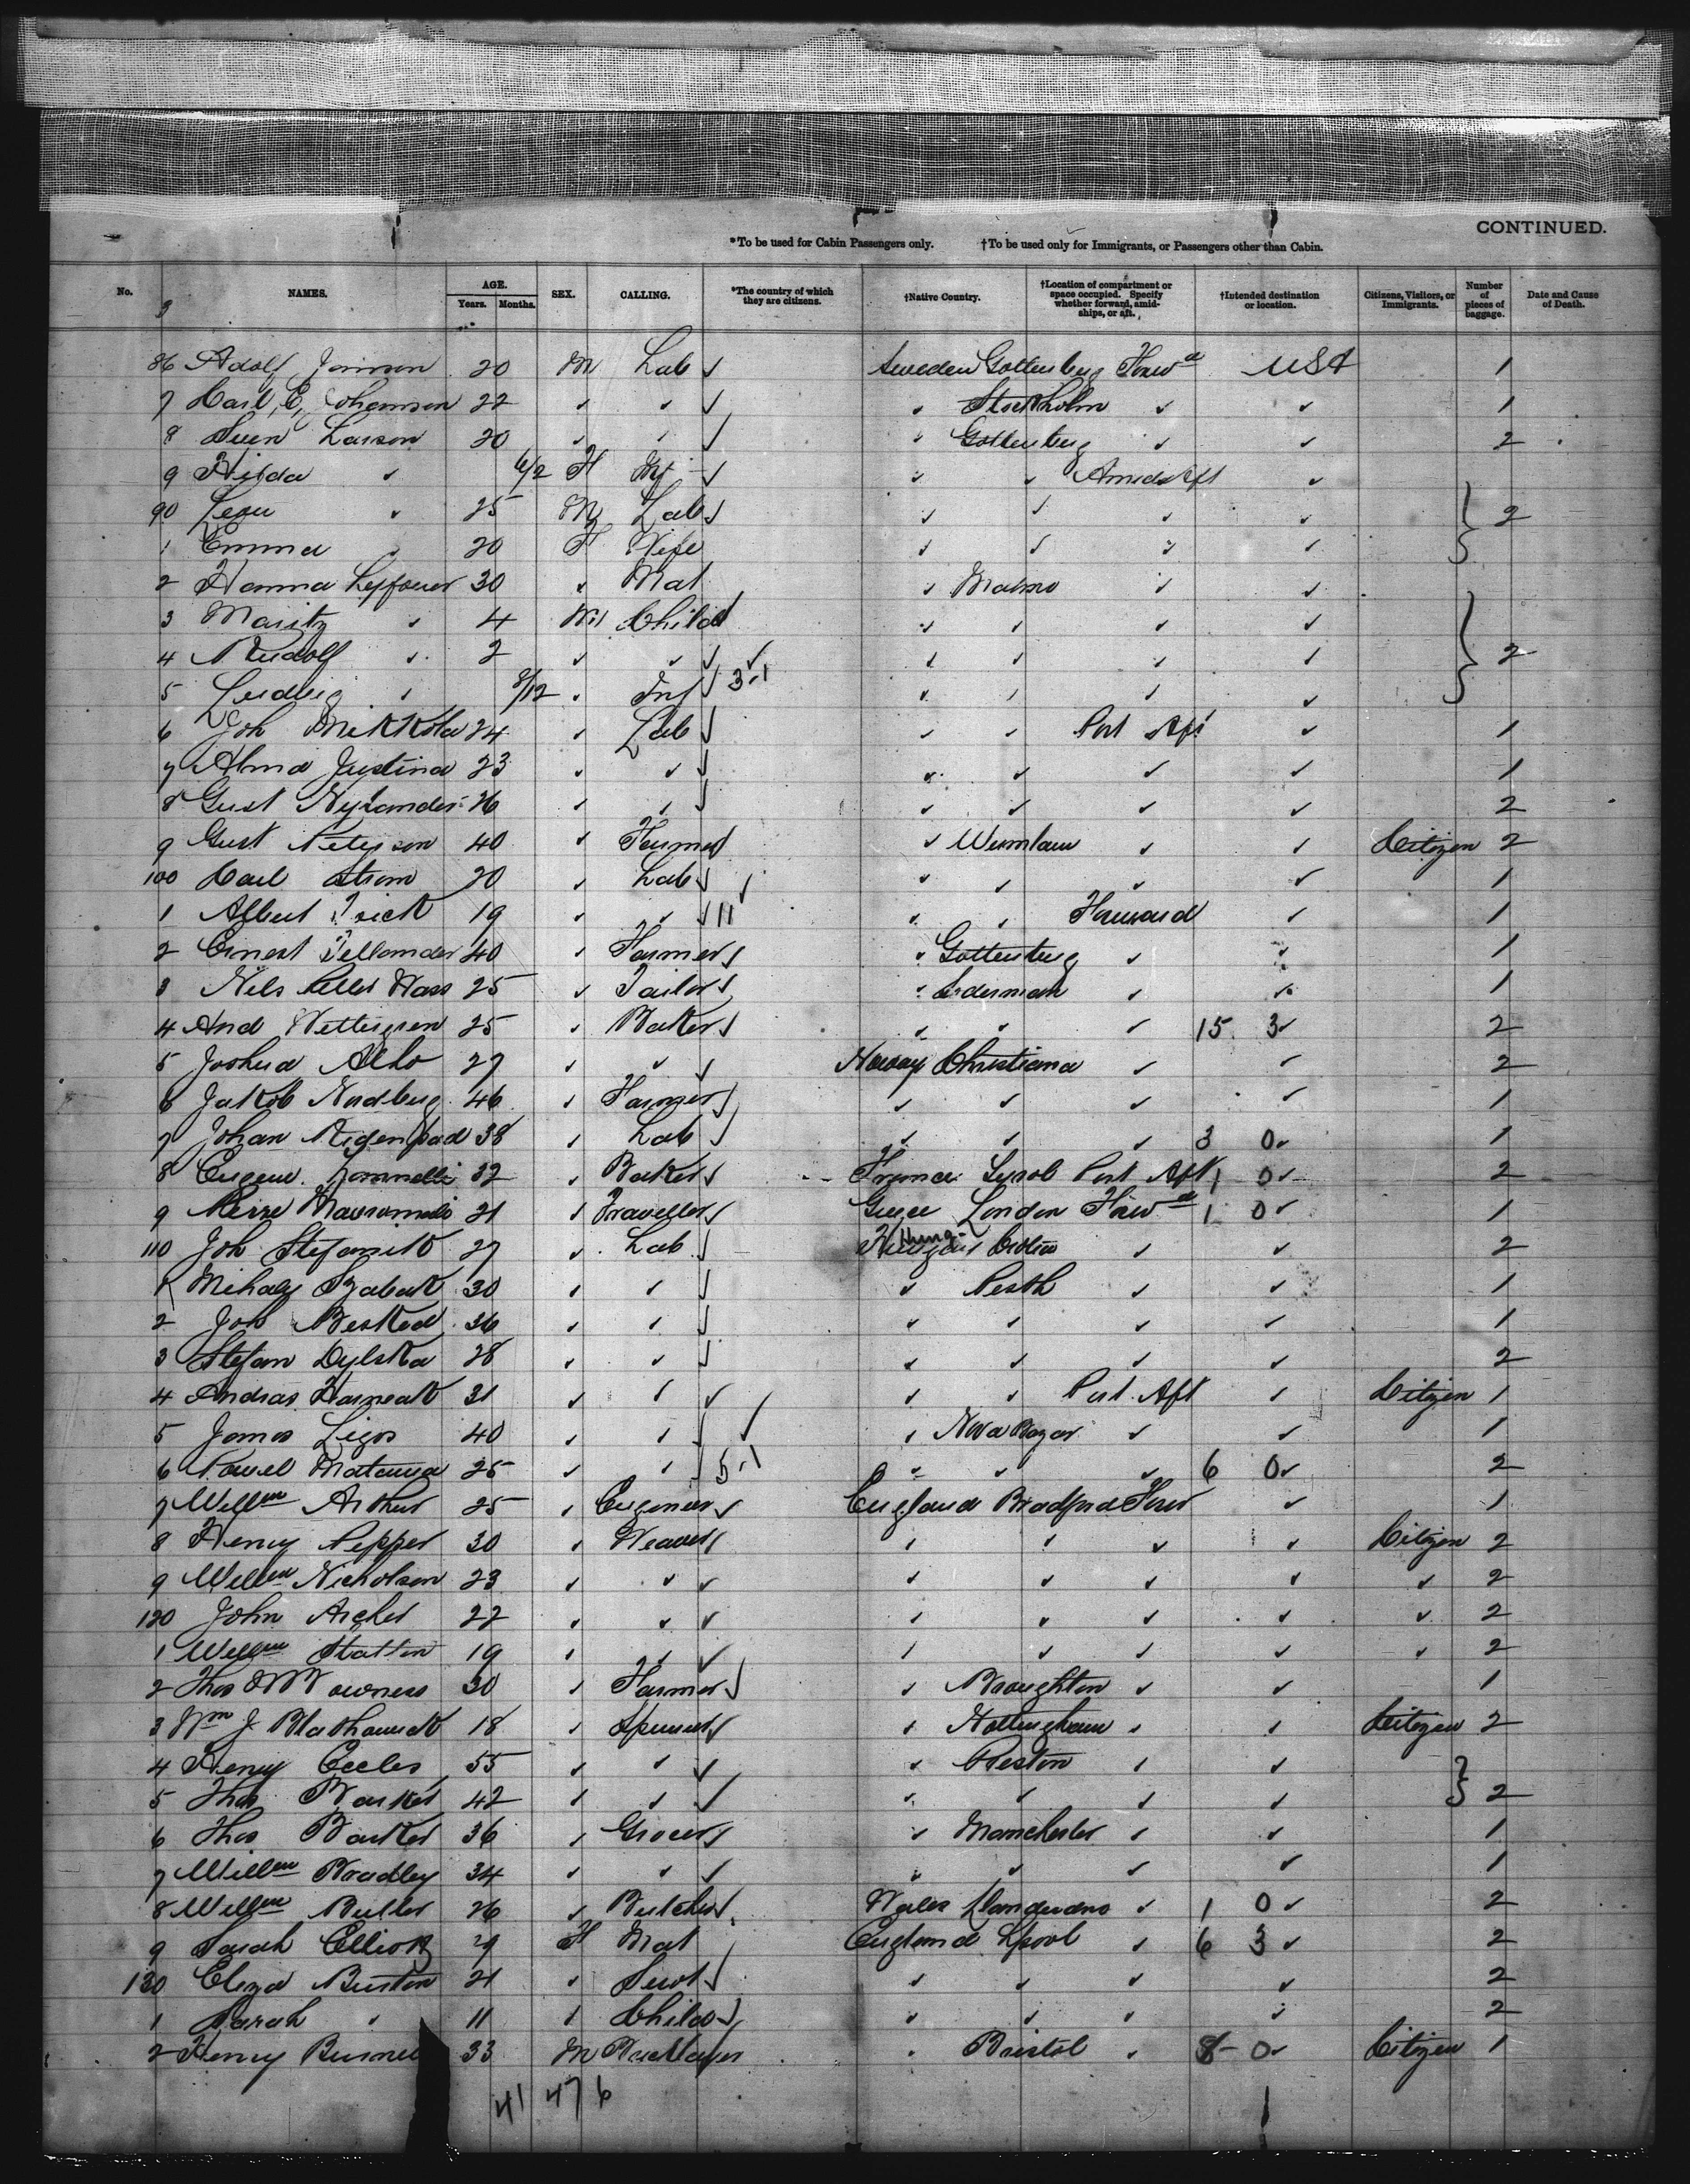 CONTINUED.
*To be used for Cabin Passengers only. †To be used only for Immigrants, or Passengers other than Cabin.
No. NAMES. AGE. Years. Months. SEX. CALLING. *The country of which they are citizens. †Native Country. †Location of compartment or space occupied. Specify whether forward, amidships, or aft. †Intended destination or location. Citizens, Visitors, or Immigrants. Number of pieces of baggage. Date and Cause of Death.
3
86 Adolf 20 M Lab ✓ Sweden Gottenberg Forwd USA 1
7 Carl E. Johannson 22 ✓ ✓ ✓ ✓ Stockholm ✓ ✓ 1
8 Sven Larson 20 ✓ ✓ ✓ ✓ Gottenberg ✓ ✓ 2
9 Hilda ✓ F Inf ✓ ✓ ✓ Amids Aft ✓
90 ✓ 25 M Lab ✓ ✓ ✓ ✓ ✓ 2
1 Emma ✓ 20 F Wife ✓ ✓ ✓ ✓
2 Hanna 30 ✓ Mat ✓ Malmo ✓ ✓
3 Maritz ✓ 4 M Child ✓ ✓ ✓ ✓
4 Rudolf ✓ 2 ✓ ✓ ✓ ✓ ✓ ✓ ✓ 2
5 Ludvig ✓ 8/12 ✓ Inf ✓ 3-1 ✓ ✓ ✓ ✓
6 Joh Mikkola 24 ✓ Lab ✓ ✓ ✓ Port Aft ✓ 1
7 Alma Justina 23 ✓ ✓ ✓ ✓ ✓ ✓ ✓ 1
8 Gust Nylander 26 ✓ ✓ ✓ ✓ ✓ ✓ ✓ 2
9 Gust Peterson 40 ✓ Farmer ✓ ✓ ✓ Citizen 2
100 Carl Strom 20 ✓ Lab ✓ ✓ ✓ ✓ ✓ 1
1 Albert 19 ✓ ✓ ✓ 11 ✓ ✓ Forward ✓ 1
2 Ernest 40 ✓ Farmer ✓ ✓ Gottenberg ✓ ✓ 1
3 Nils 25 ✓ Tailor ✓ ✓ ✓ ✓ 1
4 And Wettergren 25 ✓ Baker ✓ ✓ ✓ ✓ 15 3 ✓ 2
5 Joshua Alho 27 ✓ ✓ ✓ Norway Christiana ✓ ✓ 2
6 Jakob Nordberg 46 ✓ Farmer ✓ ✓ ✓ ✓ ✓ 1
7 Johan 38 ✓ Lab ✓ ✓ ✓ ✓ 3 0 ✓ 1
8 Eugene 32 ✓ Baker ✓ France Tyrol Port Aft 1 0 ✓ 2
9 21 ✓ Traveller ✓ Greece London Forwd 1 0 ✓ 1
110 Joh Stefanik 27 ✓ Lab ✓ Hung. ✓ ✓ 2
1 Mihaly Szabak 30 ✓ ✓ ✓ ✓ Pesth ✓ ✓ 1
2 Joh 36 ✓ ✓ ✓ ✓ ✓ ✓ ✓ 1
3 Stefan Dylska 28 ✓ ✓ ✓ ✓ ✓ ✓ ✓ 2
4 Andras 31 ✓ ✓ ✓ ✓ ✓ Port Aft ✓ Citizen 1
5 Janos Ligos 40 ✓ ✓ ✓ ✓ Nova Bazar ✓ ✓ 1
6 Pawel 25 ✓ ✓ ✓ 5-1 ✓ ✓ ✓ 6 0 ✓ 2
7 Willm Arthur 25 ✓ Engineer ✓ England Bradford Forw ✓ 1
8 Henry Pepper 30 ✓ Weaver ✓ ✓ ✓ ✓ ✓ Citizen 2
9 Willm Nicholson 23 ✓ ✓ ✓ ✓ ✓ ✓ ✓ ✓ 2
120 John Archer 22 ✓ ✓ ✓ ✓ ✓ ✓ ✓ ✓ 2
1 Willm Statton 19 ✓ ✓ ✓ ✓ ✓ ✓ ✓ ✓ 2
2 Thos 30 ✓ Farmer ✓ ✓ Broughton ✓ ✓ 1
3 Wm J. 18 ✓ Spinner ✓ ✓ Nottingham ✓ ✓ Citizen 2
4 Henry Eccles 55 ✓ ✓ ✓ ✓ Preston ✓ ✓
5 Thos Barker 42 ✓ ✓ ✓ ✓ ✓ ✓ ✓ 2
6 Thos Barker 36 ✓ Grocer ✓ ✓ Manchester ✓ ✓ 1
7 Willm Bradley 34 ✓ ✓ ✓ ✓ ✓ ✓ ✓ 1
8 Willm Butler 26 ✓ Butcher ✓ Wales ✓ 1 0 ✓ 2
9 Sarah Elliott F Mat England Lpool ✓ 6 3 ✓ 2
130 Eliza Burton 21 ✓ Servt ✓ ✓ ✓ ✓ ✓ 2
1 Sarah ✓ 11 ✓ Child ✓ ✓ ✓ ✓ ✓ 2
2 Henry 33 M Bricklayer ✓ Bristol ✓ 8 0 ✓ Citizen 1
41 47 6